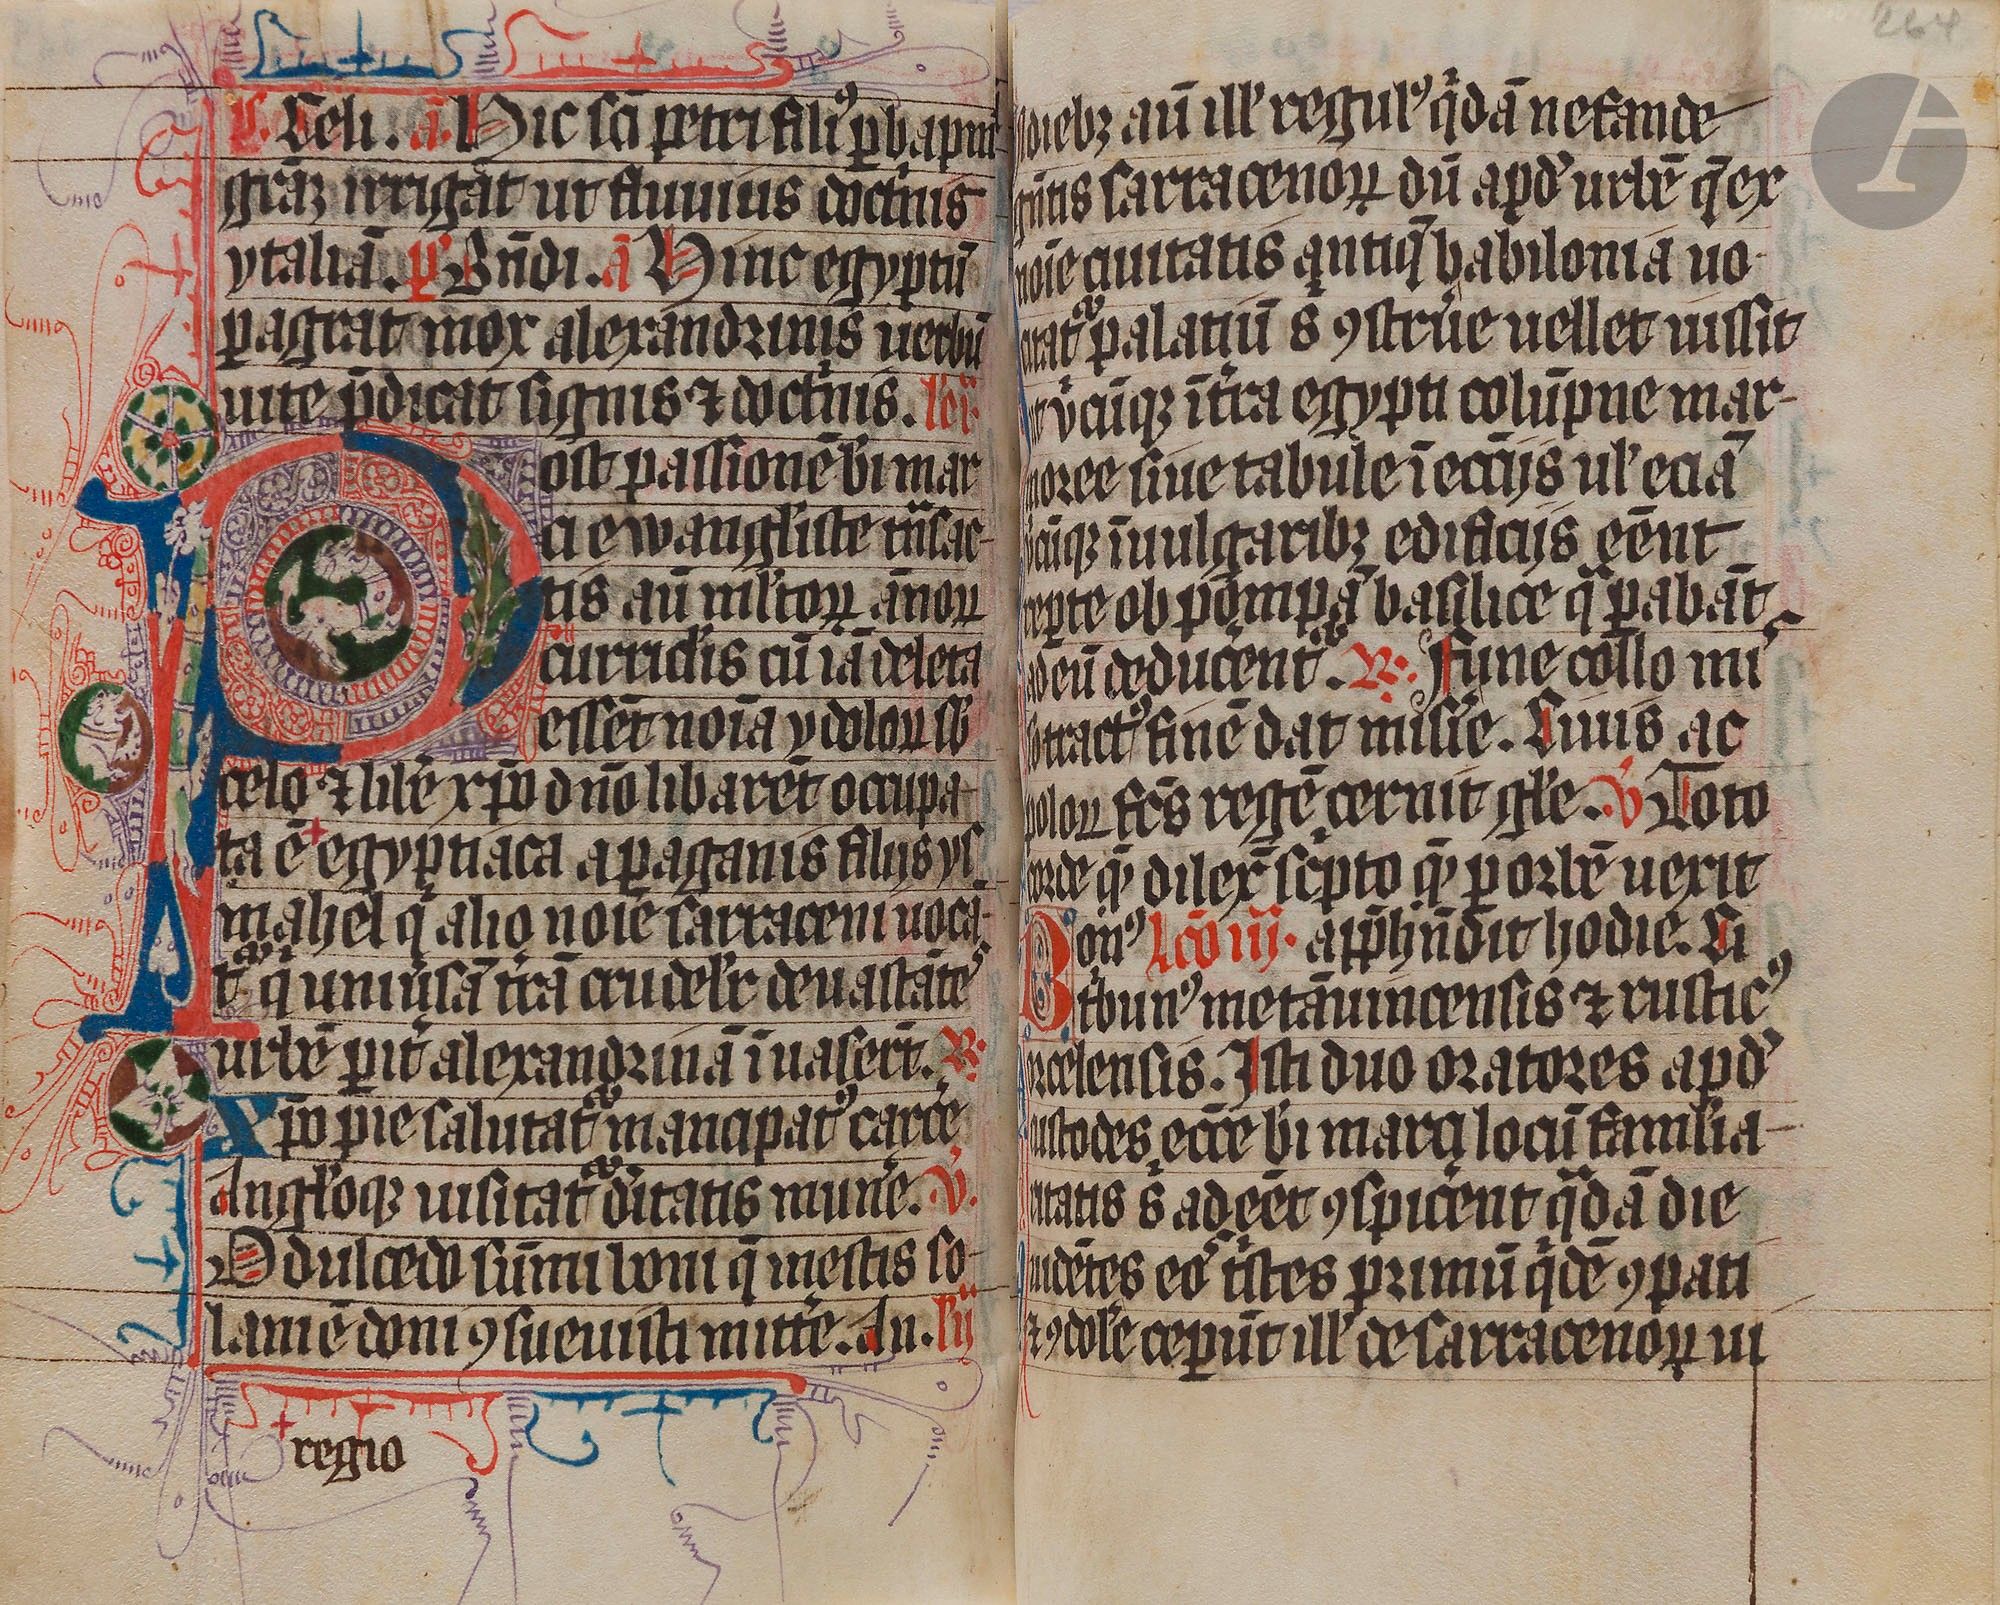 P̄. Celi. a͞. Hic sc̄i petri filiꝰ ꝑ bapmī
gr̄aꝫ irrigāt ut fluuius doct͛nis
ytaliā. p̄ Bn̄di. a͞ Hinc egyptū
ꝑagrat mox alexandrinis uerbū
uite p̄dicat signis ⁊ doct͛nis. lc̄i.
ost passionē bi͞ mar
ci ewangl͛iste trn̄sac-
tis aū ml͛toꝝ an̄oꝝ
curriclis̄ cū iā deleta
essēt noīa ydoloꝝ ⁊
celo ⁊ libē xp̄o dn̄o libarēt occupa-
ta ē⁺ egyptiaca a paganis filijs ys
mahel q̄ alio noīe sarraceni uoca-
t᷑ q̄ uniūsā tr̄ā crudel͛r deuastātes
urbē pit͛ alexandrinā īuaser̄t. R̷.
Xp̄o pie salutat᷑ mancipatꝰ carce͛
Angl͛oqꝫ uisitat᷑ diītatis mune͛. V̄.
O dulcedo sūmi boni q̄ mestis so-
lamē doni ꝯsueuisti mitte͛. An. līj
⁺regio
diebꝫ aū ill͛ regulꝰ qͥdā nefande
gn̄tis sarracenoꝝ dū apd͛ urbē q̄ ex
noīe ciuitatis antiq̄ babilonia uo-
citat᷑ palatiū s͛ ꝯstrue͛ uellet iussit
ut v̄cūqꝫ īt͛ra egypti colūpne mar-
moree siue tabule ī ecc̄ijs ul͛ eciā
v̄cūqꝫ īuulgaribꝫ edificijs eēnt
repte ob pōmpā basilice q̄ ꝑabāt᷑
ad eū deduce͛nt᷑. R̷. Fune collo mi
so tractꝰ finē dat mise͛. Ciuis ac
poloꝝ fc̄s regē cernit gl͛e. V̄ Toto
corde qm̄ dilex͛ sc͛pto qm̄ p orbē uexit
Bonꝰ lc̄o iij. app̄hn̄dit hodie. Ci
tͥbunꝰ metāuincensis ⁊ rusticꝰ
orcelensis. Isti duo oratores apd͛
custodes ecc̄e bi͞ marci locū familia-
ritatis s͛ adeēt ꝯspice͛nt qͣdā die
uidētes eoˢ tͥstes primū qͥdē ꝯpati
⁊ ꝯdole͛ ceper̄t ill͛ de sarracenoꝝ ui
264